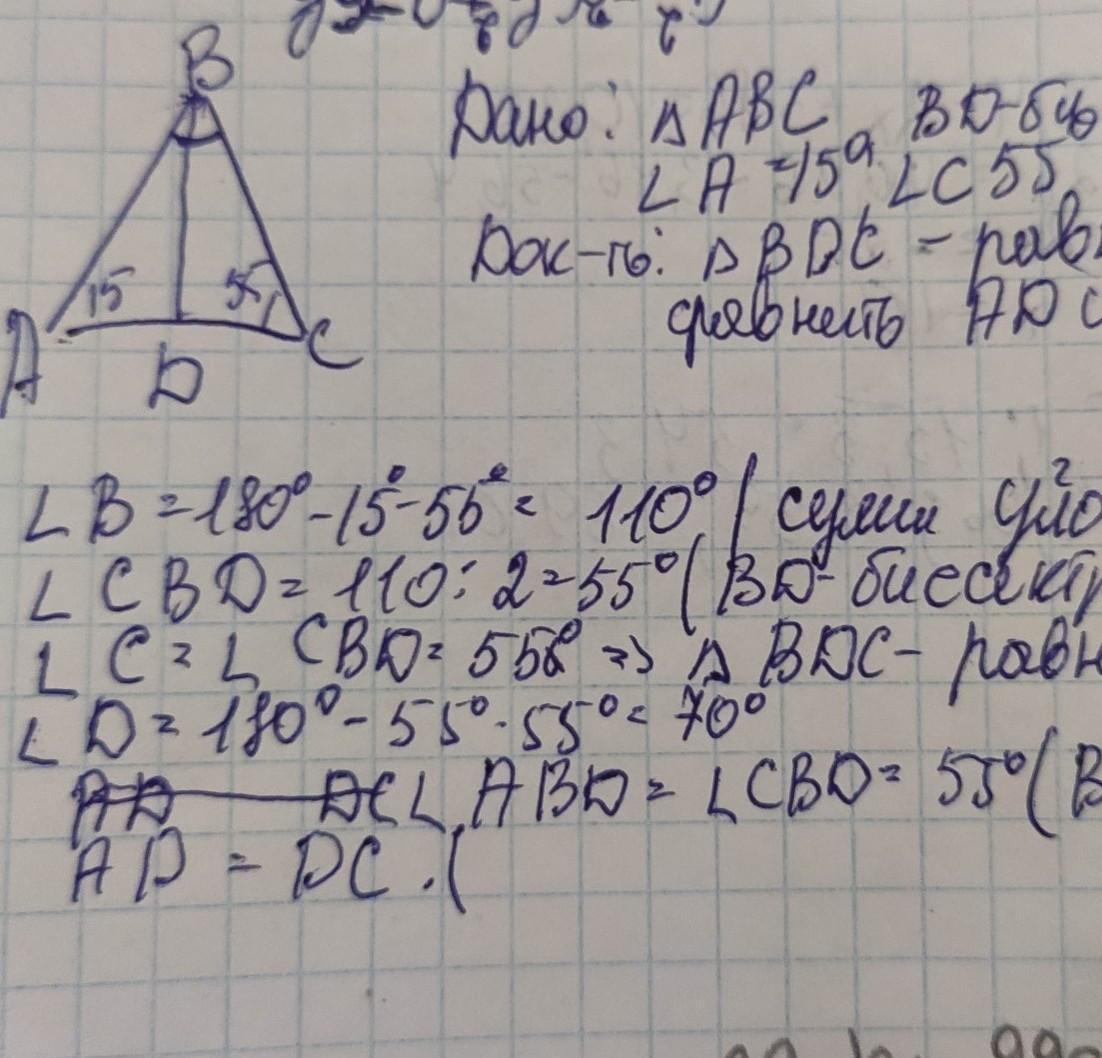 B
Дано: △ ABC BD-бис
∠A =15° ∠C 55
Док-ть: △BDC - равн
сравнить AD С
15 55
A D C
∠B =180°-15°-55°= 110° ( сумм угло
∠CBD= 110:2=55° (BD-биссектр
∠C=∠ CBD= 55° => △ BDC- равн
∠D=180°-55°-55°= 70°
AD DC ∠ABD= ∠CBD= 55° (В
AD = DC . (